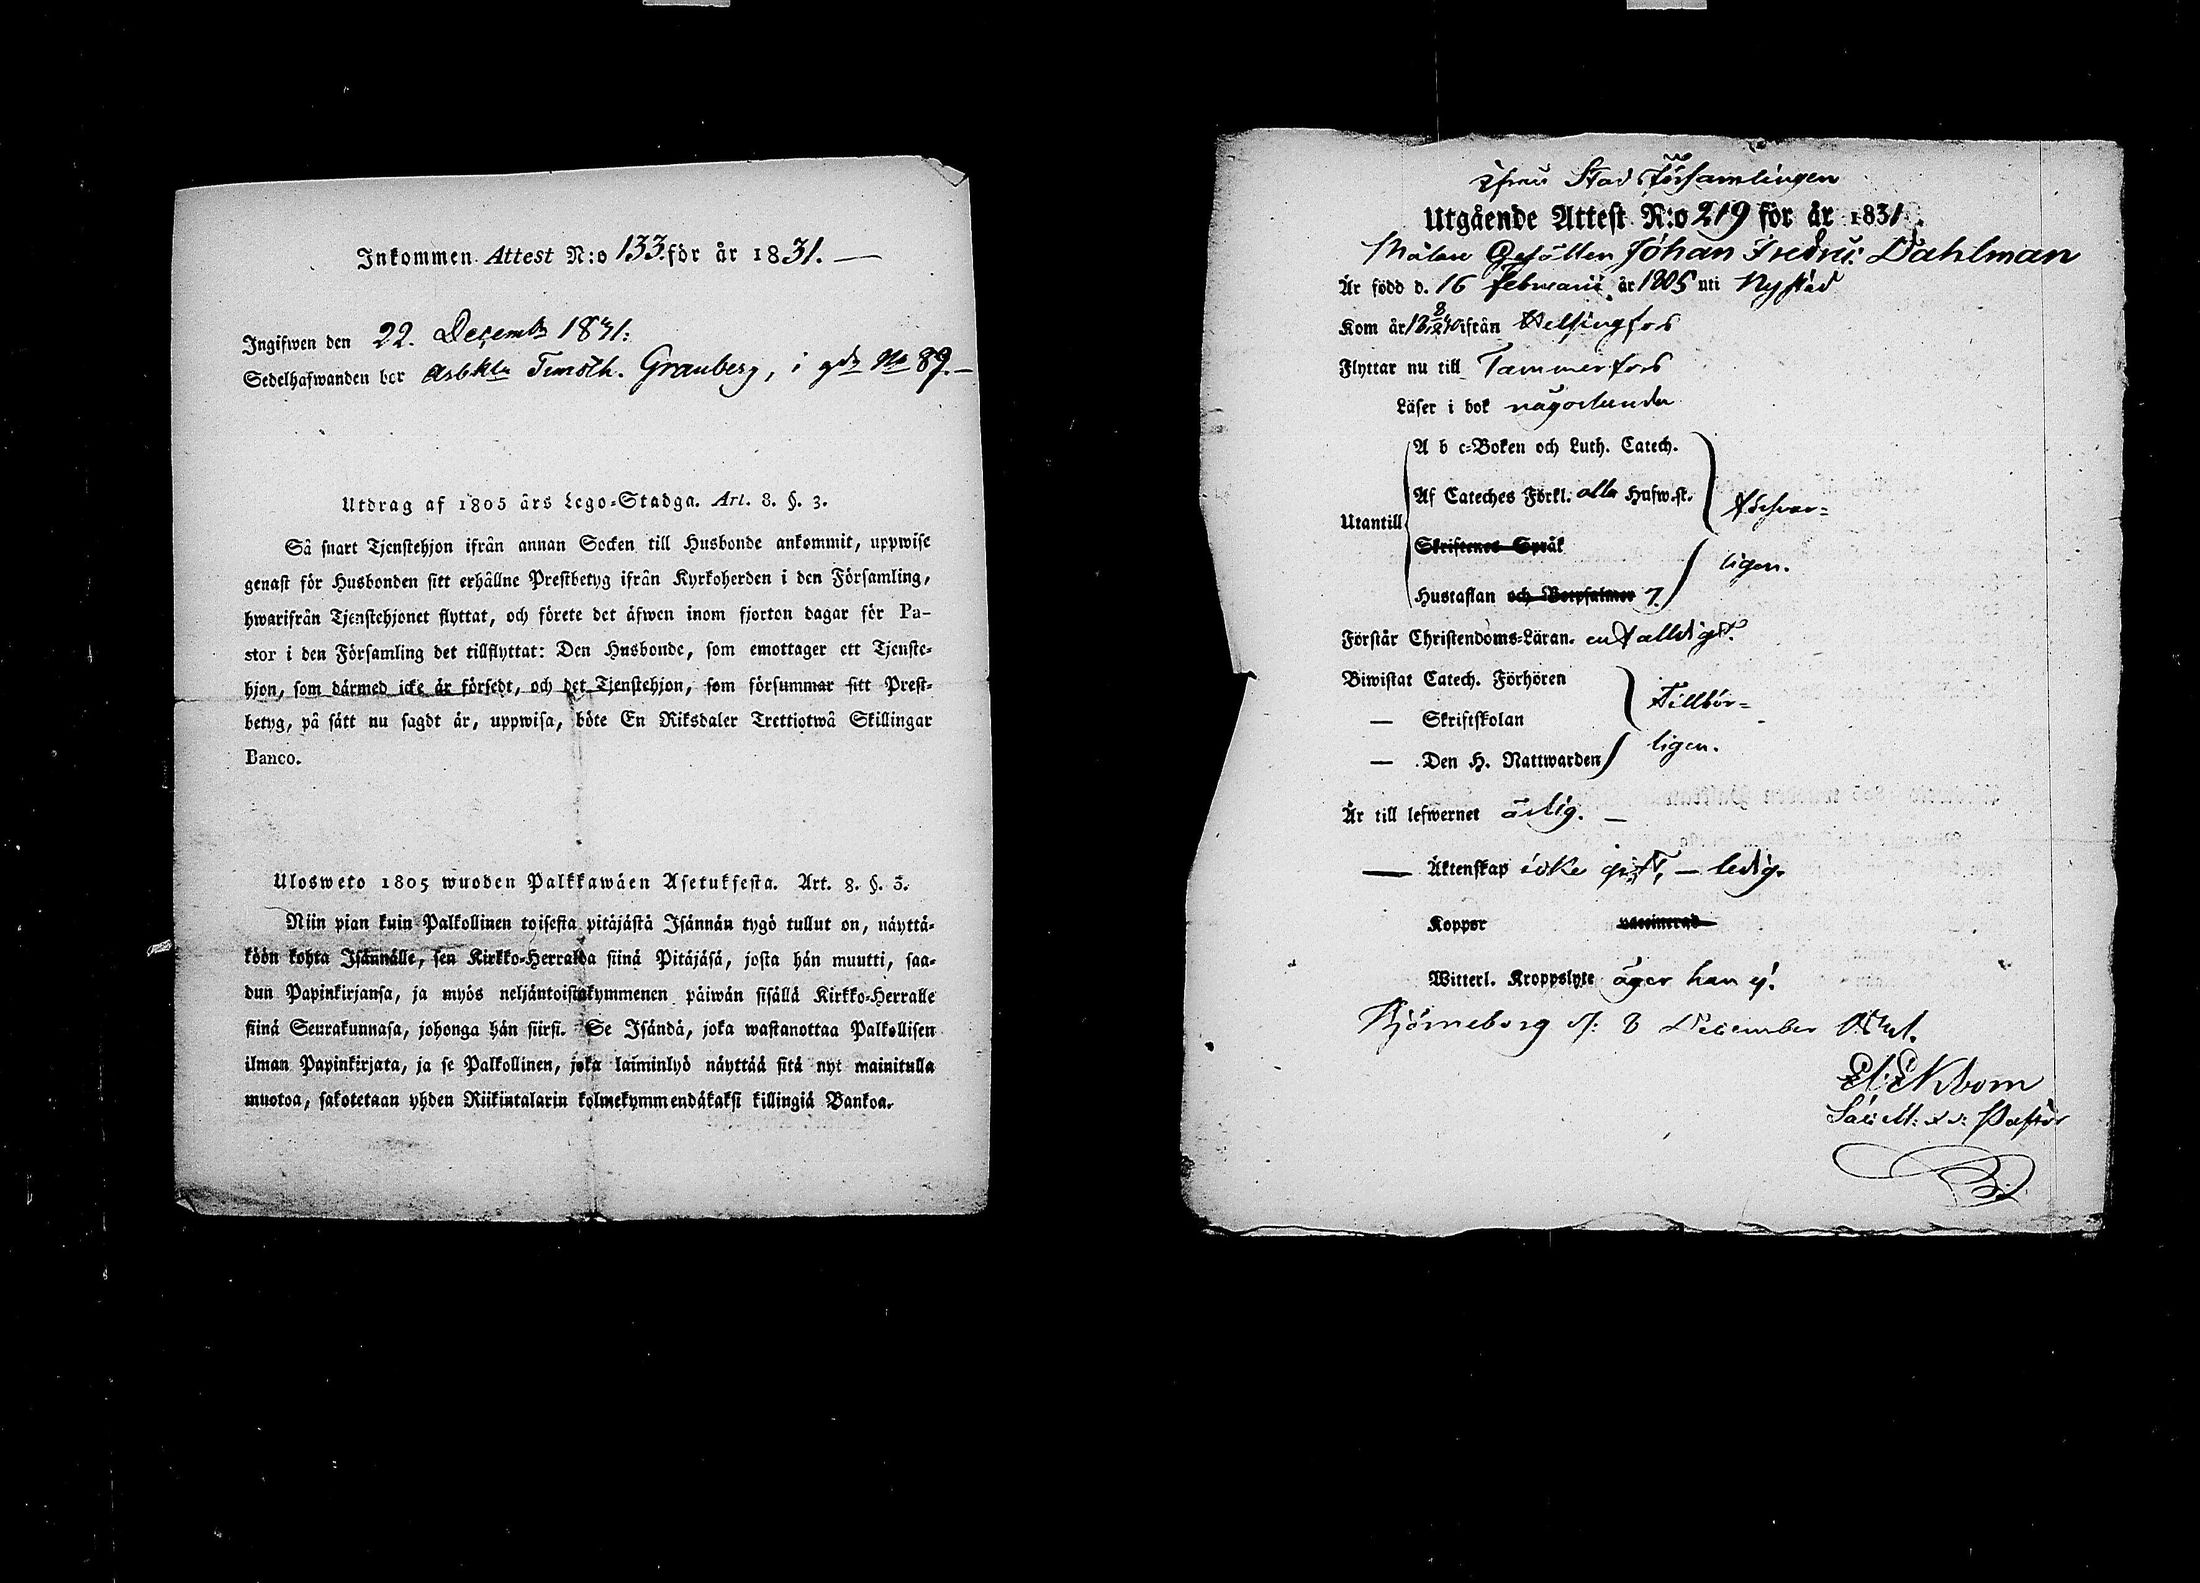 Inkommen Attest N:o 133. för år 1831. —
Ingifwen den 22. Decemb 1831:
Sedelhafwanden bor Arbkln Timoth. Granberg, i gdn No 89. —
Utdrag af 1805 års Lego-Stadga. Art. 8. §. 3.
Så snart Tjenstehjon ifrån annan Socken till Husbonde ankommit, uppwise
genast för Husbonden sitt erhållne Prestbetyg ifrån Kyrkoherden i den Församling,
hwarifrån Tjenstehjonet flyttat, och förete det äfwen inom fjorton dagar för Pa-
stor i den Församling det tillflyttat: Den Husbonde, som emottager ett Tjenste-
hjon, som därmed icke är försedt, och det Tjenstehjon, som försummar sitt Prest-
betyg, på sätt nu sagdt är, uppwisa, böte En Riksdaler Trettiotwå Skillingar
Banco.
Ulosweto 1805 wuoden Palkkawäen Asetuksesta. Art. 8. §. 3.
Niin pian kuin Palkollinen toisesta pitäjästä Isännän tygö tullut on, näyttä-
köön kohta Isännälle, sen Kirkko-Herralda siinä Pitäjäsä, josta hän muutti, saa-
dun Papinkirjansa, ja myös neljäntoistakymmenen päiwän sisällä Kirkko-Herralle
siinä Seurakunnasa, johonga hän siirsi. Se Isändä, joka wastanottaa Palkollisen
ilman Papinkirjata, ja se Palkollinen, joka laiminlyö näyttää sitä nyt mainitulla
muotoa, sakotetaan yhden Riikintalarin kolmekymmendäkaksi killingiä Bankoa.
ifrån Stads Församlingen
Utgående Attest N:o 219 för år 1831.
Målare Gesällen Johan Fredric Dahlman
Är född d. 16 Februarii år 1805 uti Nystad
Kom år ifrån Helsingfors
Flyttar nu till Tammerfors
Läser i bok någorlunda
A b c-Boken och Luth. Catech.
Af Cateches Förkl. alla Hufw.st.
Utantill Försvar=
Skriftenes Språk
ligen.
Hustaflan och Botpsalmer 7.
Förstår Christendoms-Läran. enfalldigt.
Biwistat Catech. Förhören
Tillbör=
— Skriftskolan
ligen.
— Den H. Nattwarden
Är till lefwernet ärlig. —
— Äktenskap icke gift, — ledig.
Koppor vaccinerad
Witterl. Kroppslyte äger han ej.
Björneborg d: 8 December 1831.
El: Ekbom
Sac M: v.: Pastor